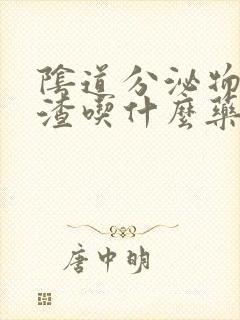 陰道分泌物
渣喫什麼藥
唐中明